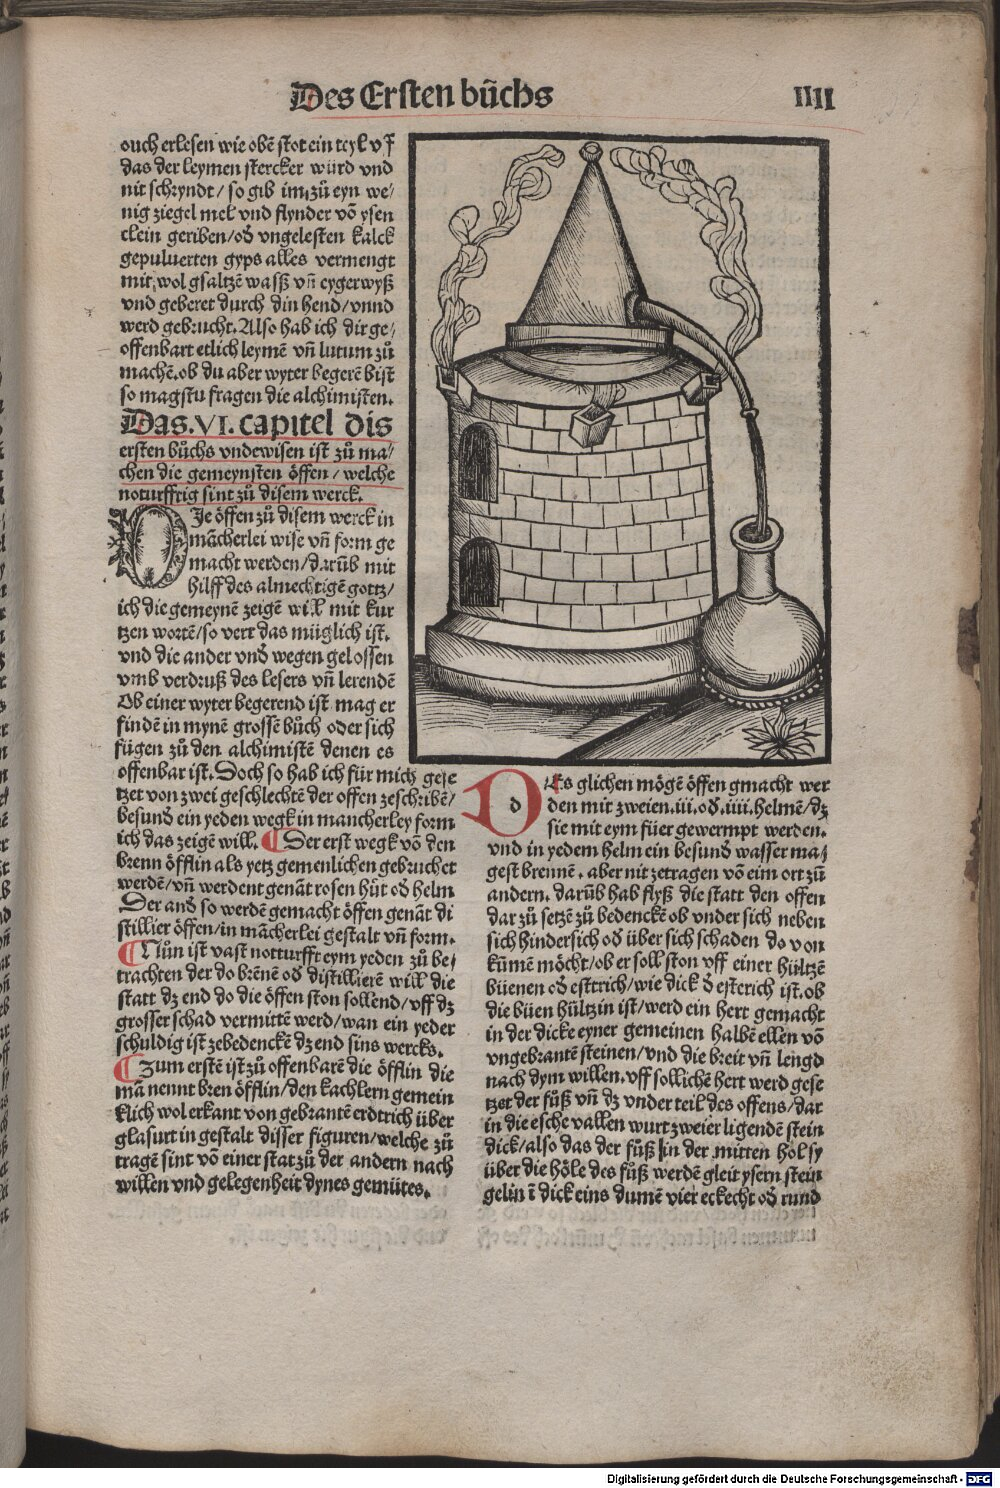 Des Ersten bůchs
IIII
ouch erlesen wie obē stot ein teyl vf
das der leymen stercker würd vnd
nit schryndt / so gib im zů eyn we/
nig ziegel mel vnd flynder vō ysen
clein geriben/od̄ vngelesten kalck
gepuluerten gyps alles vermengt
mit wol gsaltzē wasß vn̄ eygerwyß
vnd geberet durch din hend/vnnd
werd gebrucht. Also hab ich dir ge/
offenbart etlich leymē vn̄ lutum zů
machē. ob du aber wyter begerē bist
so magstu fragen die alchimisten.
Das .VI. capitel dis
ersten bůchs vndewisen ist zů ma/
chen die gemeynsten öffen / welche
noturfftig sint zů disem werck.
DJe öffen zů disem werck in
mācherlei wise vn̄ form ge
macht werden/darūb mit
hilff des almechtigē gottz/
ich die gemeynē zeigē will mit kur
tzen wortē/so verr das müglich ist.
vnd die ander vnd̄ wegen gelossen
vmb verdruß des lesers vn̄ lerendē
Ob einer wyter begerend ist mag er
findē in mynē grossē bůch oder sich
fügen zů den alchimistē denen es
offenbar ist. Doch so hab ich für mich gese
tzet von zwei geschlechtē der offen zeschribē/
besund ein yeden wegk in mancherley form
ich das zeigē will. ¶ Der erst wegk vō den
brenn öfflin als yetz gemenlichen gebruchet
werdē/vn̄ werdent genāt rosen hůt od̄ helm
Der and̄ so werdē gemacht öffen genāt di
stillier öffen/in mācherlei gestalt vn̄ form.
¶ Nůn ist vast notturfft eym yeden zů be/
trachten der do brēnē od̄ distillierē will die
statt dz end do die öffen ston sollend/vff dz
grosser schad vermittē werd/wan ein yeder
schuldig ist zebedenckē dz end sins wercks.
¶ Zum erstē ist zů offenbarē die öfflin die
mā nennt bren öfflin/den kachlern gemein
klich wol erkant von gebrantē erdtrich über
glasurt in gestalt disser figuren/welche zů
tragē sint vō einer stat zů der andern nach
willen vnd gelegenheit dynes gemütes.
Des glichen mögē öffen gmacht wer
den mit zweien.iii.od̄.iiii.helmē/dz
sie mit eym füer gewermpt werden.
vnd in yedem helm ein besund̄ wasser ma/
gest brennē. aber nit zetragen vō eim ort zů
andern. darūb hab flyß die statt den offen
dar zů setzē zů bedenckē ob vnder sich neben
sich hindersich od̄ über sich schaden do von
kūmē möcht/ob er soll ston vff einer hültzē
büenen od̄ esttrich/wie dick d̄ esterich ist. ob
die büen hültzin ist/werd ein hert gemacht
in der dicke eyner gemeinen halbē ellen vō
vngebrantē steinen/vnd die breit vn̄ lengd
nach dym willen. vff sollichē hert werd gese
tzet der fůß vn̄ dz vnder teil des offens/dar
in die esche vallen wurt zweier ligendē stein
dick/also das der fůß in der mitten hol sy
über die höle des fůß werdē gleit ysern stein
gelin ī dick eins dumē vier eckecht od̄ rund
Digitalisierung gefördert durch die Deutsche Forschungsgemeinschaft - DFG